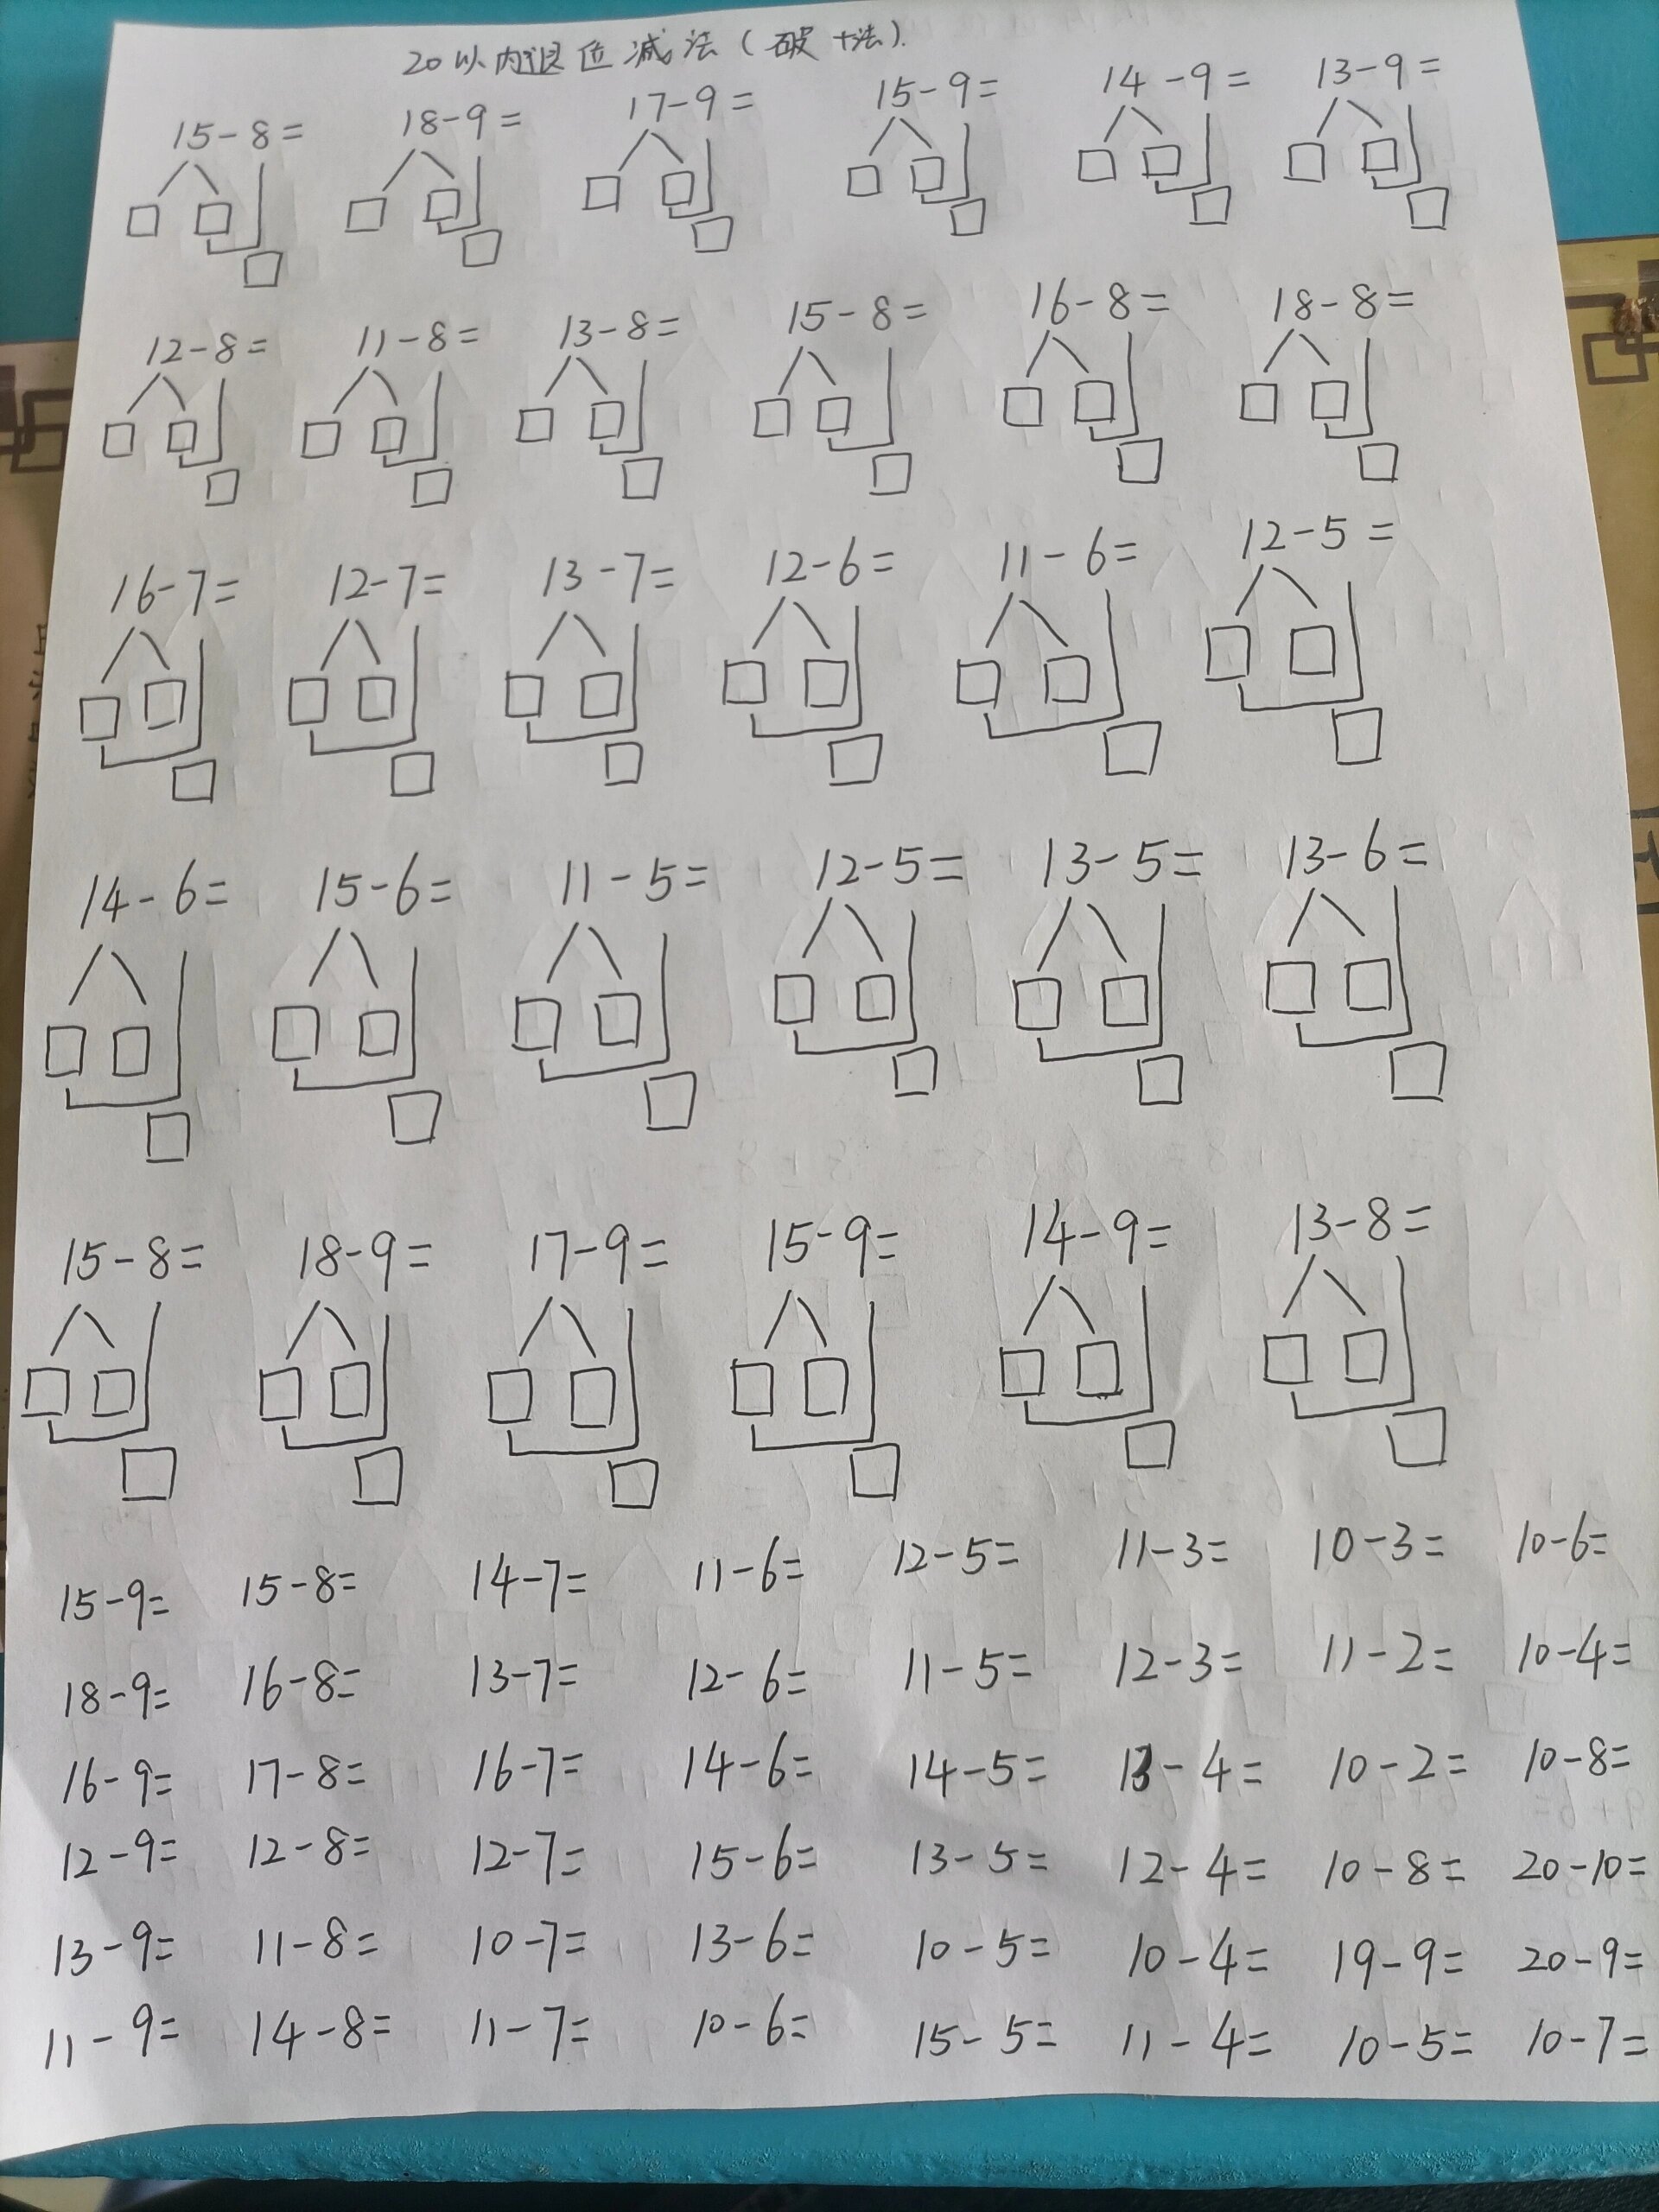 20以内退位减法(破十法).
15-8= 18-9= 17-9= 15-9= 14-9= 13-9=
12-8= 11-8= 13-8= 15-8= 16-8= 18-8=
16-7= 12-7= 13-7= 12-6= 11-6= 12-5=
14-6= 15-6= 11-5= 12-5= 13-5= 13-6=
15-8= 18-9= 17-9= 15-9= 14-9= 13-8=
15-9= 15-8= 14-7= 11-6= 12-5= 11-3= 10-3= 10-6=
18-9= 16-8= 13-7= 12-6= 11-5= 12-3= 11-2= 10-4=
16-9= 17-8= 16-7= 14-6= 14-5= 13-4= 10-2= 10-8=
12-9= 12-8= 12-7= 15-6= 13-5= 12-4= 10-8= 20-10=
13-9= 11-8= 10-7= 13-6= 10-5= 10-4= 19-9= 20-9=
11-9= 14-8= 11-7= 10-6= 15-5= 11-4= 10-5= 10-7=